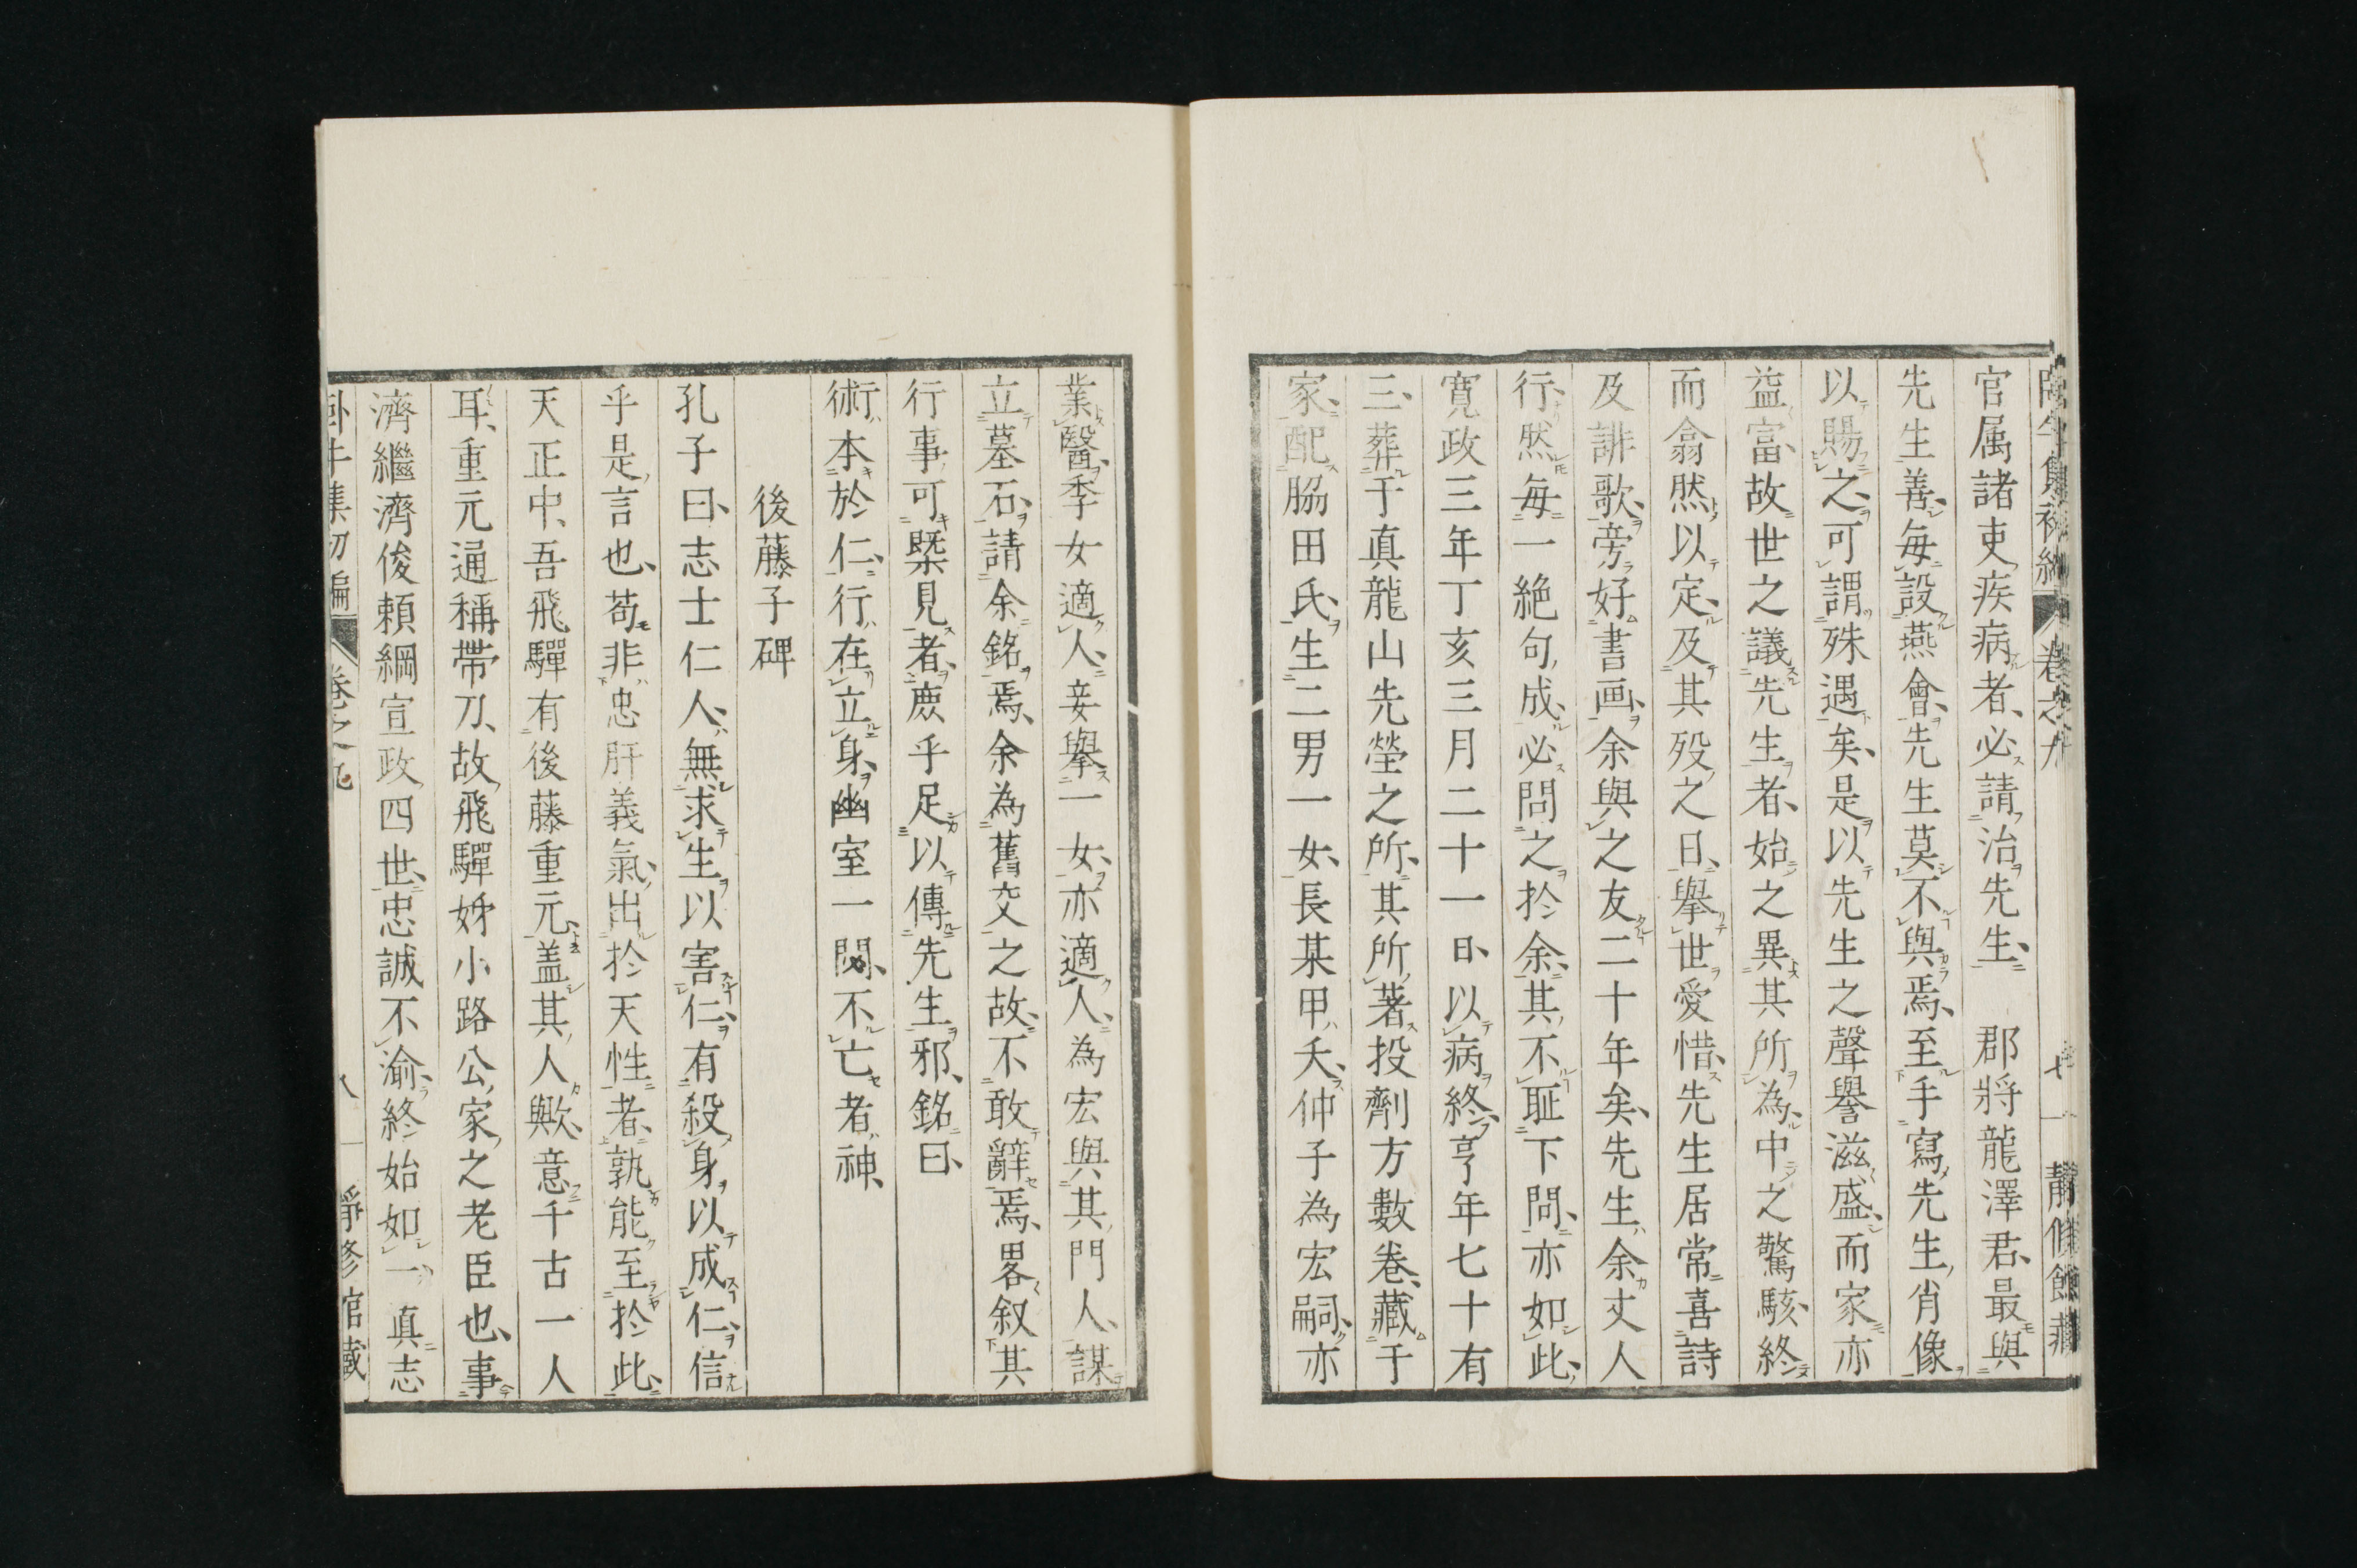 官属諸吏疾病者必請治先生　郡將龍澤君最與
先生善毎設燕會先生莫不與焉至手寫先生肖像
以賜之可謂殊遇矣是以先生之聲譽滋盛而家亦
益富故世之議先生者始之異其所為中之驚駭終
而翕然以定及其歿之日擧世愛惜先生居常喜詩
及誹歌旁好書画余與之友二十年矣先生余丈人
行然毎一絶句成必問之於余其不耻下問亦如此
寛政三年丁亥三月二十一日以病終享年七十有
三葬于真龍山先塋之所其所著投劑方數卷藏于
家配脇田氏生二男一女長某甲夭仲子為宏嗣亦
業醫季女適人妾擧一女亦適人為宏與其門人謀
立墓石請余銘焉余為舊交之故不敢辭焉畧叙其
行事可槩見者庶乎足以傳先生邪銘曰
術本於仁行在立身幽室一閟不亡者神
後藤子碑
孔子曰志士仁人無求生以害仁有殺身以成仁信
乎是言也苟非忠肝義氣出於天性者孰能至於此
天正中吾飛驒有後藤重元盖其人歟意千古一人
耳重元通稱帶刀故飛驒姉小路公家之老臣也事
濟繼濟俊頼綱宣政四世忠誠不渝終始如一真志
臥牛集初編　卷之九　八　靜修館藏